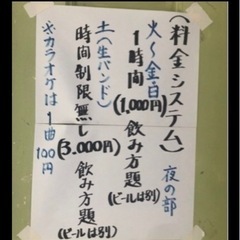 (料金システム)
夜の部
火～金日
1時間
(1,000円)
飲み方題
(ビールは別)
土(生バンド)
時間制限無し
(3,000円)
飲み方題
(ビールは別)
※カラオケは1曲100円